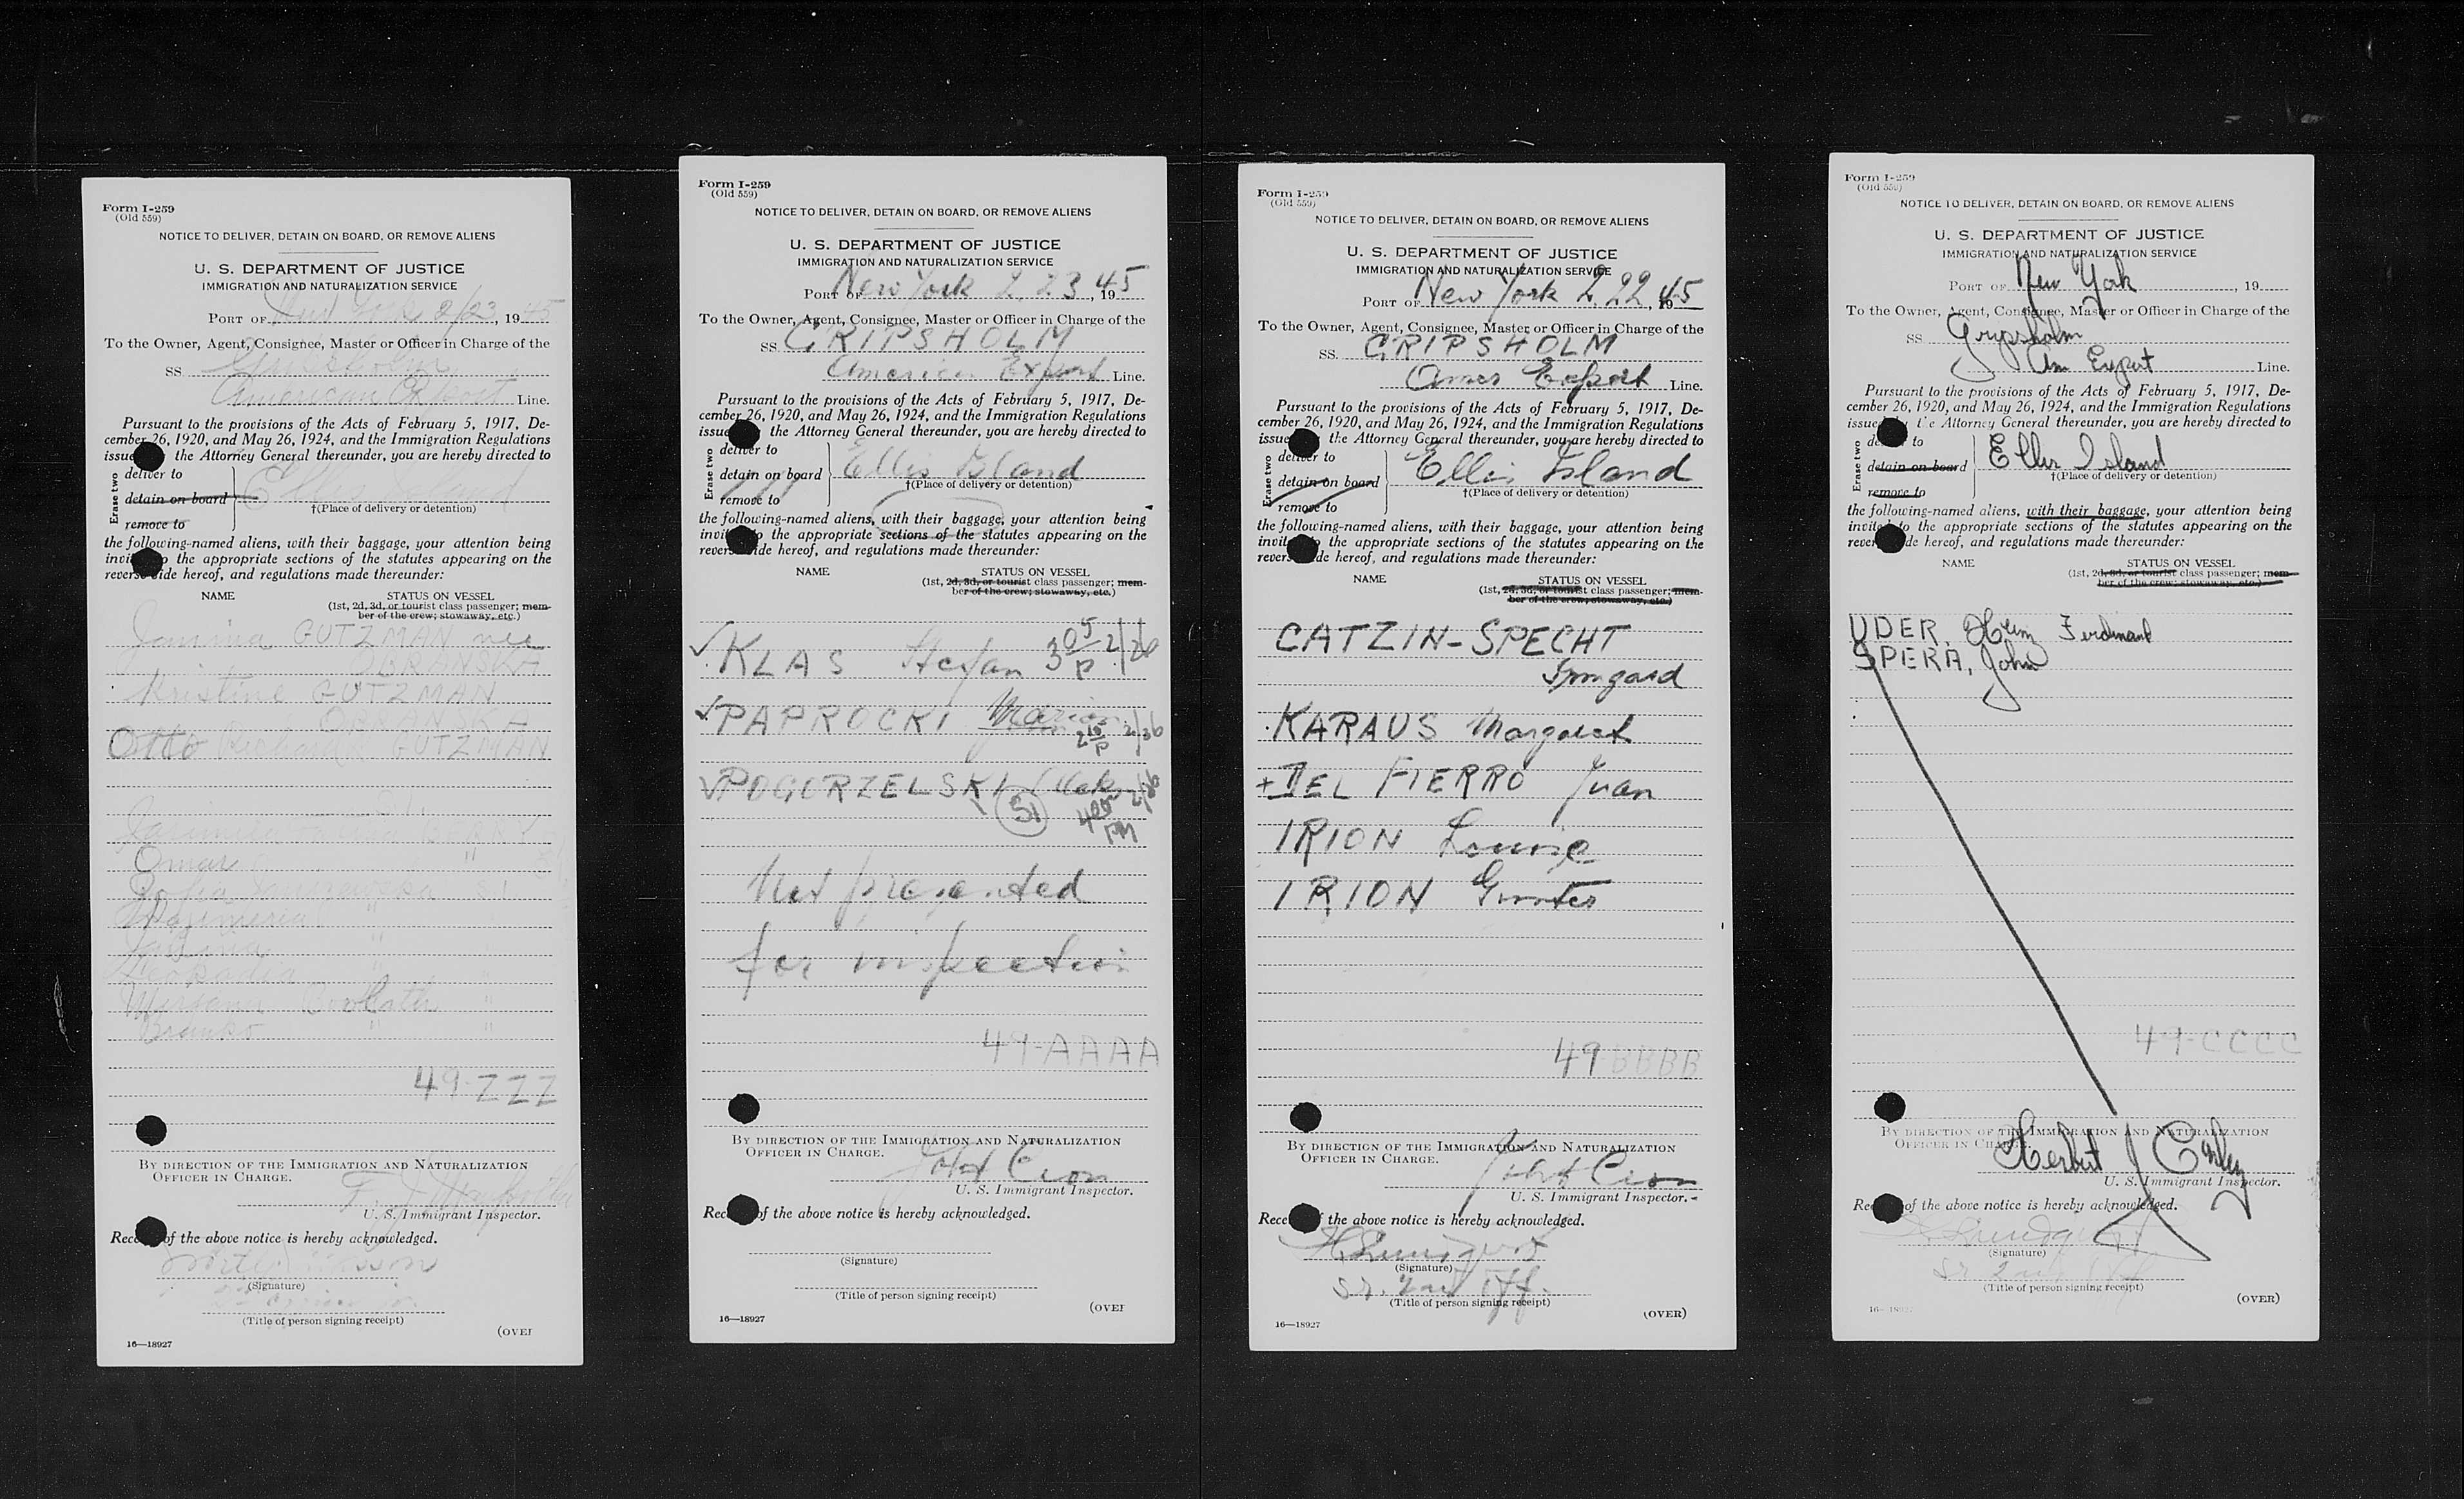 Form I-259
(Old 559)
NOTICE TO DELIVER, DETAIN ON BOARD, OR REMOVE ALIENS
U. S. DEPARTMENT OF JUSTICE
IMMIGRATION AND NATURALIZATION SERVICE
PORT OF New York 2/23, 1945
To the Owner, Agent, Consignee, Master or Officer in Charge of the
SS Gripsholm
American Export Line.
Pursuant to the provisions of the Acts of February 5, 1917, De-
cember 26, 1920, and May 26, 1924, and the Immigration Regulations
issue the Attorney General thereunder, you are hereby directed to
Erase two
deliver to
detain on board
remove to
Ellis Island
†(Place of delivery or detention)
the following-named aliens, with their baggage, your attention being
invit to the appropriate sections of the statutes appearing on the
reverse side hereof, and regulations made thereunder:
NAME STATUS ON VESSEL
(1st, 2d, 3d, or tourist class passenger; mem-
ber of the crew; stowaway, etc.)
Janina GUTZMAN nee
Kristine GUTZMAN
Otto Richard GUTZMAN
Omar "
Zofia
Kazimieria "
Janina "
Leokadia "
Branko " "
49-ZZZ
BY DIRECTION OF THE IMMIGRATION AND NATURALIZATION
OFFICER IN CHARGE.
U. S. Immigrant Inspector.
Rece of the above notice is hereby acknowledged.
(Signature)
(Title of person signing receipt)
16—18927 (OVER
Form I-259
(Old 559)
NOTICE TO DELIVER, DETAIN ON BOARD, OR REMOVE ALIENS
U. S. DEPARTMENT OF JUSTICE
IMMIGRATION AND NATURALIZATION SERVICE
PORT OF New York 2 23, 1945
To the Owner, Agent, Consignee, Master or Officer in Charge of the
SS. GRIPSHOLM
American Export Line.
Pursuant to the provisions of the Acts of February 5, 1917, De-
cember 26, 1920, and May 26, 1924, and the Immigration Regulations
issue the Attorney General thereunder, you are hereby directed to
Erase two
deliver to
detain on board
remove to
Ellis Island
†(Place of delivery or detention)
the following-named aliens, with their baggage, your attention being
invit to the appropriate sections of the statutes appearing on the
rever ide hereof, and regulations made thereunder:
NAME STATUS ON VESSEL
(1st, 2d, 3d, or tourist class passenger; mem-
ber of the crew; stowaway, etc.)
✓ KLAS Stefan 3 05 P 2/26
✓ PAPROCKI Marian 2 10 P 2/26
✓ POGORZELSKI 2/26
SI 4 05 PM
Not presented
for inspection
49-AAAA
BY DIRECTION OF THE IMMIGRATION AND NATURALIZATION
OFFICER IN CHARGE.
John Cion
U. S. Immigrant Inspector.
Rec of the above notice is hereby acknowledged.
(Signature)
(Title of person signing receipt)
16—18927 (OVER
Form I-259
(Old 559)
NOTICE TO DELIVER, DETAIN ON BOARD, OR REMOVE ALIENS
U. S. DEPARTMENT OF JUSTICE
IMMIGRATION AND NATURALIZATION SERVICE
PORT OF New York 2 22, 1945
To the Owner, Agent, Consignee, Master or Officer in Charge of the
SS. GRIPSHOLM
Amer Export Line.
Pursuant to the provisions of the Acts of February 5, 1917, De-
cember 26, 1920, and May 26, 1924, and the Immigration Regulations
issue the Attorney General thereunder, you are hereby directed to
Erase two
deliver to
detain on board
remove to
Ellis Island
†(Place of delivery or detention)
the following-named aliens, with their baggage, your attention being
invit to the appropriate sections of the statutes appearing on the
rever ide hereof, and regulations made thereunder:
NAME STATUS ON VESSEL
(1st, 2d, 3d, or tourist class passenger; mem-
ber of the crew; stowaway, etc.)
CATZIN-SPECHT
Irmgard
KARAUS Margaret
+ DEL FIERRO Juan
IRION Louise
IRION Gunter
49 BBBB
BY DIRECTION OF THE IMMIGRATION AND NATURALIZATION
OFFICER IN CHARGE.
John Cion
U. S. Immigrant Inspector.
Rece the above notice is hereby acknowledged.
H Lundquist
(Signature)
Sr. 2nd Off.
(Title of person signing receipt)
16—18927 (OVER)
Form I-259
(Old 559)
NOTICE TO DELIVER, DETAIN ON BOARD, OR REMOVE ALIENS
U. S. DEPARTMENT OF JUSTICE
IMMIGRATION AND NATURALIZATION SERVICE
PORT OF New York, 19
To the Owner, Agent, Consignee, Master or Officer in Charge of the
SS Grypsholm
Am Export Line.
Pursuant to the provisions of the Acts of February 5, 1917, De-
cember 26, 1920, and May 26, 1924, and the Immigration Regulations
issue the Attorney General thereunder, you are hereby directed to
Erase two
de to
detain on board
remove to
Ellis Island
†(Place of delivery or detention)
the following-named aliens, with their baggage, your attention being
invit to the appropriate sections of the statutes appearing on the
rever de hereof, and regulations made thereunder:
NAME STATUS ON VESSEL
(1st, 2d, 3d, or tourist class passenger; mem-
ber of the crew; stowaway, etc.)
UDER, Heinz Ferdinand
SPERA, John
49-CCCC
BY DIRECTION OF THE IMMIGRATION AND NATURALIZATION
OFFICER IN CHARGE.
Herbert J Carley
U. S. Immigrant Inspector.
Re of the above notice is hereby acknowledged.
H Lundquist
(Signature)
Sr 2nd Off
(Title of person signing receipt)
16—18927 (OVER)